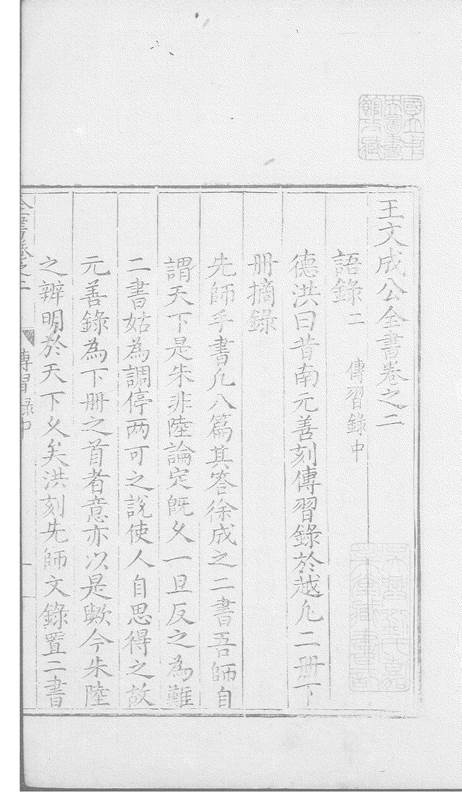 王文成公全書卷之二
語錄二 傳習錄中
德洪曰昔南元善刻傳習錄於越凡二册下
册摘錄
先師手書凡八篇其答徐成之二書吾師自
謂天下是朱非陸論定既乆一旦反之為難
二書姑為調停两可之說使人自思得之故
元善錄為下册之首者意亦以是歟今朱陸
之辨明於天下乆矣洪刻先師文錄置二書
全書卷之二 傳習錄中 一